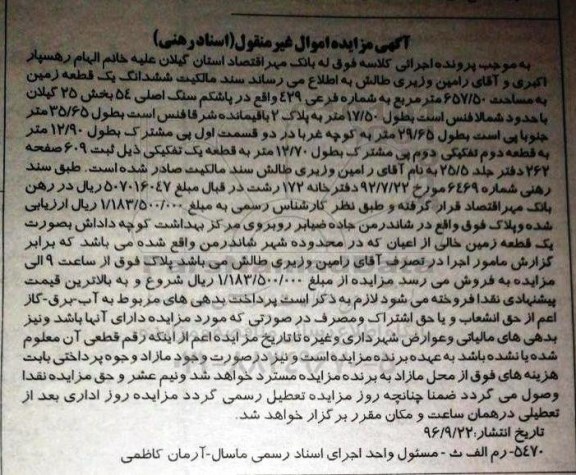 آگهی مزایده اموال غیر منقول (اسناد رهنی)
به موجب پرونده اجرائی کلاسه فوق له بانک مهر اقتصاد استان گیلان علیه خانم الهام رهسپار
اکبری و آقای رامین وزیری طالش به اطلاع می رساند سند مالکیت ششدانگ یک قطعه زمین
به مساحت ۶۵۷/۵۰ متر مربع به شماره فرعی ۴۲۹ واقع در پاشکم سنگ اصلی ۵۴ بخش ۲۵ گیلان
با حدود شمالا فنس است بطول ۱۷/۵۰ متر به پلاک ۲ باقیمانده شرقا فنس است بطول ۳۵/۶۵ متر
جنوبا پی است بطول ۲۹/۶۵ متر به کوچه غربا در دو قسمت اول پی مشترک بطول ۱۲/۹۰ متر
به قطعه دوم تفکیکی دوم پی مشترک بطول ۱۲/۷۰ متر به قطعه یک تفکیکی ذیل ثبت ۶۰۹ صفحه
۲۶۲ دفتر جلد ۲۵/۵ به نام آقای رامین وزیری طالش سند مالکیت صادر شده است. طبق سند
رهنی شماره ۶۴۶۹ مورخ ۹۲/۷/۲۲ دفترخانه ۱۷۲ رشت در قبال مبلغ ۵۰۷۰۱۶۰۴۷ ریال در رهن
بانک مهر اقتصاد قرار گرفته و طبق نظر کارشناس رسمی به مبلغ ۱/۱۸۳/۵۰۰/۰۰۰ ریال ارزیابی
شده و پلاک فوق واقع در شاندرمن جاده ضیابر روبروی مرکز بهداشت کوچه داداش بصورت
یک قطعه زمین خالی از اعیان که در محدوده شهر شاندرمن واقع شده می باشد که برابر
گزارش مامور اجرا در تصرف آقای رامین وزیری طالش می باشد پلاک فوق از ساعت ۹ الی
مزایده به فروش می رسد مزایده از مبلغ ۱/۱۸۳/۵۰۰/۰۰۰ ریال شروع و به بالاترین قیمت
پیشنهادی نقدا فروخته می شود لازم به ذکر است پرداخت بدهی های مربوط به آب-برق-گاز
اعم از حق انشعاب و یا حق اشتراک و مصرف در صورتی که مورد مزایده دارای آنها باشد و نیز
بدهی های مالیاتی و عوارض شهرداری و غیره تا تاریخ مزایده اعم از اینکه رقم قطعی آن معلوم
شده یا نشده باشد به عهده برنده مزایده است و نیز در صورت وجود مازاد وجوه پرداختی بابت
هزینه های فوق از محل مازاد به برنده مزایده مسترد خواهد شد و نیم عشر و حق مزایده نقدا
وصول می گردد ضمنا چنانچه روز مزایده تعطیل رسمی گردد مزایده روز اداری بعد از
تعطیلی در همان ساعت و مکان مقرر برگزار خواهد شد.
تاریخ انتشار: ۹۶/۹/۲۲
۵۴۷۰- رم الف ث - مسئول واحد اجرای اسناد رسمی ماسال- آرمان کاظمی